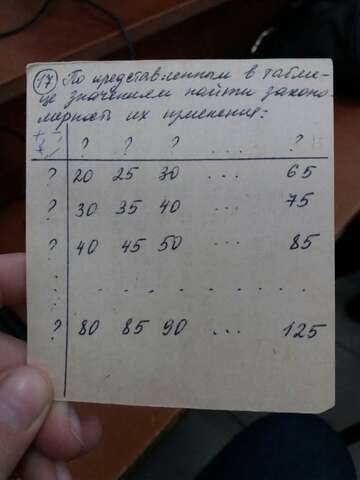 17 По представленным в табли-
це значениям найти законо
мерность их применения:
? ? ? .... ?
? 20 25 30 ... 65
? 30 35 40 ... 75
? 40 45 50 ... 85
? 80 85 90 ... 125